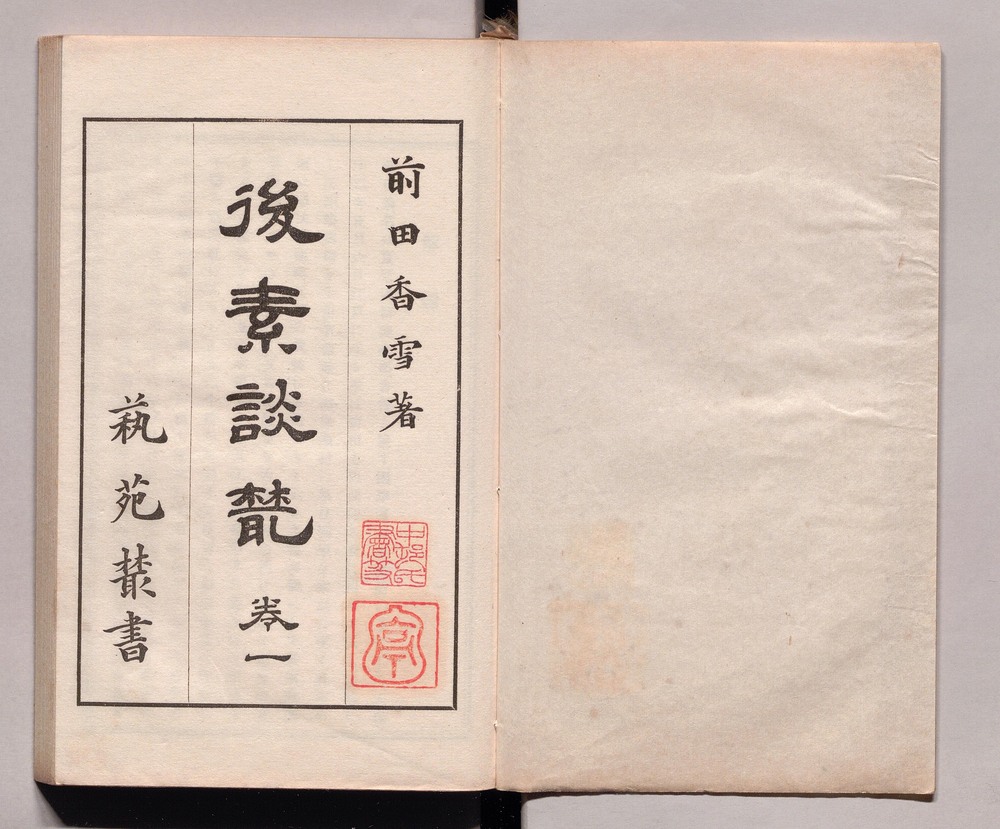 前田香雪著
後素談叢 卷一
藝苑叢書